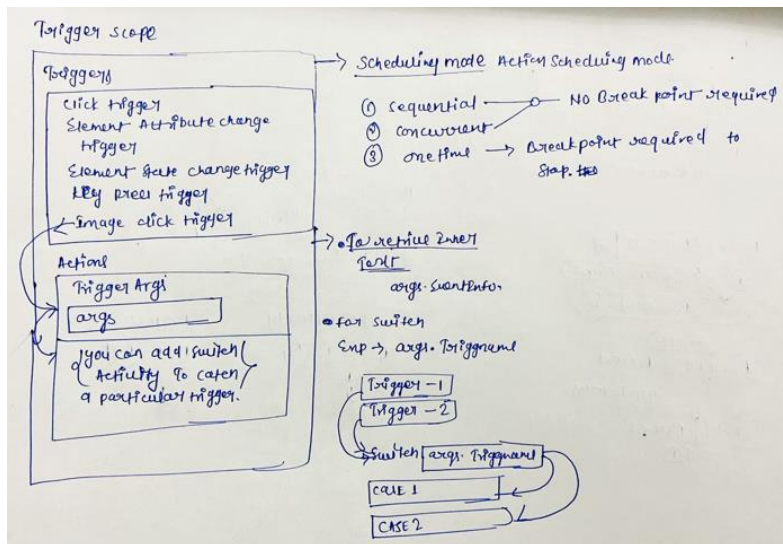 Trigger scope
Triggers
Click trigger
Element Attribute change
trigger
Element State change trigger
Key press trigger
Image click trigger
Actions
Trigger Args
args
you can add switch
Activity To catch
a particular trigger.
Scheduling mode Action Scheduling mode
① sequential
② concurrent
NO Break point required
③ onetime → Breakpoint required to
stop.
To retrive Inner
Text
args.EventInfo.
for switch
Exp → args.Triggname
Trigger - 1
Trigger - 2
switch args.Triggname
CASE 1
CASE 2